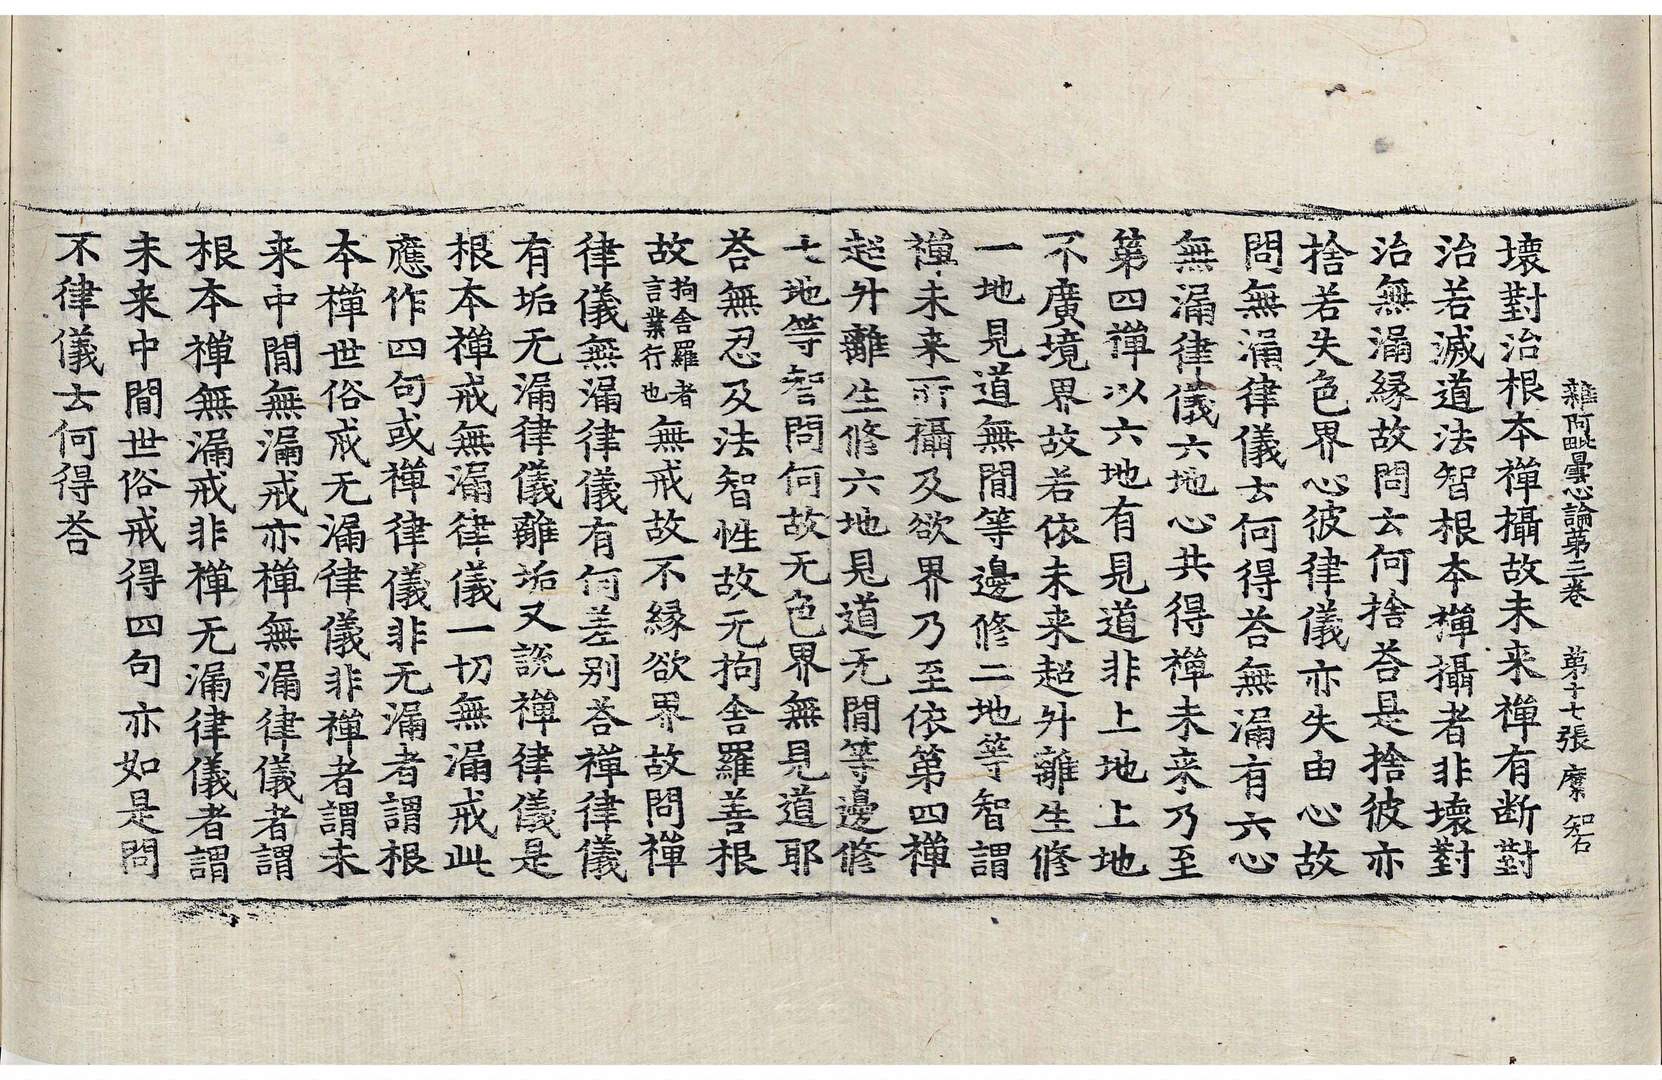 雜阿毗曇心論第三卷　第十七張　縻　智石
壞對治根本禪攝故未来禪有断對
治若滅道法智根本禪攝者非壞對
治無漏縁故問云何捨荅是捨彼亦
捨若失色界心彼律儀亦失由心故
問無漏律儀云何得荅無漏有六心
無漏律儀六地心共得禪未来乃至
第四禪以六地有見道非上地上地
不廣境界故若依未来超升離生修
一地見道無閒等邊修二地等智謂
禪未来所攝及欲界乃至依第四禪
超升離生修六地見道无閒等邊修
七地等智問何故无色界無見道耶
荅無忍及法智性故无拘舍羅善根
故拘舍羅者言業行也無戒故不縁欲界故問禪
律儀無漏律儀有何差别荅禪律儀
有垢无漏律儀離垢又說禪律儀是
根本禪戒無漏律儀一切無漏戒此
應作四句或禪律儀非无漏者謂根
本禪世俗戒无漏律儀非禪者謂未
来中閒無漏戒亦禪無漏律儀者謂
根本禪無漏戒非禪无漏律儀者謂
未来中閒世俗戒得四句亦如是問
不律儀云何得荅